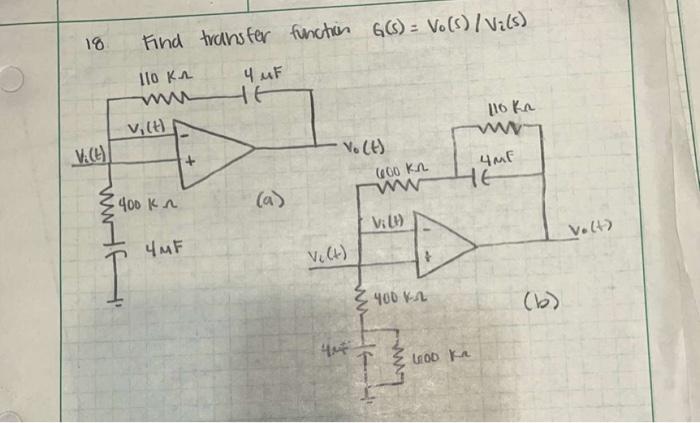 18 Find transfer function G(s) = Vo(s) / Vi(s)
110 KΩ 4 μF
V₁(t)
-
Vi(t)
+
Vo(t)
400 KΩ
4 μF
(a)
110 KΩ
600 KΩ
4 μF
V₁(t)
-
Vi(t)
+
Vo(t)
400 KΩ
4 μF
600 KΩ
(b)